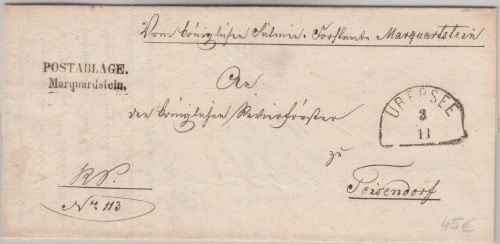 Vom königlichen Salinen-Forstamte Marquartstein
POSTABLAGE.
Marquardstein.
An
den königlichen Revierförster
zu
Teisendorf
ÜBERSEE
3
11
R.S.
Nro 113
45€